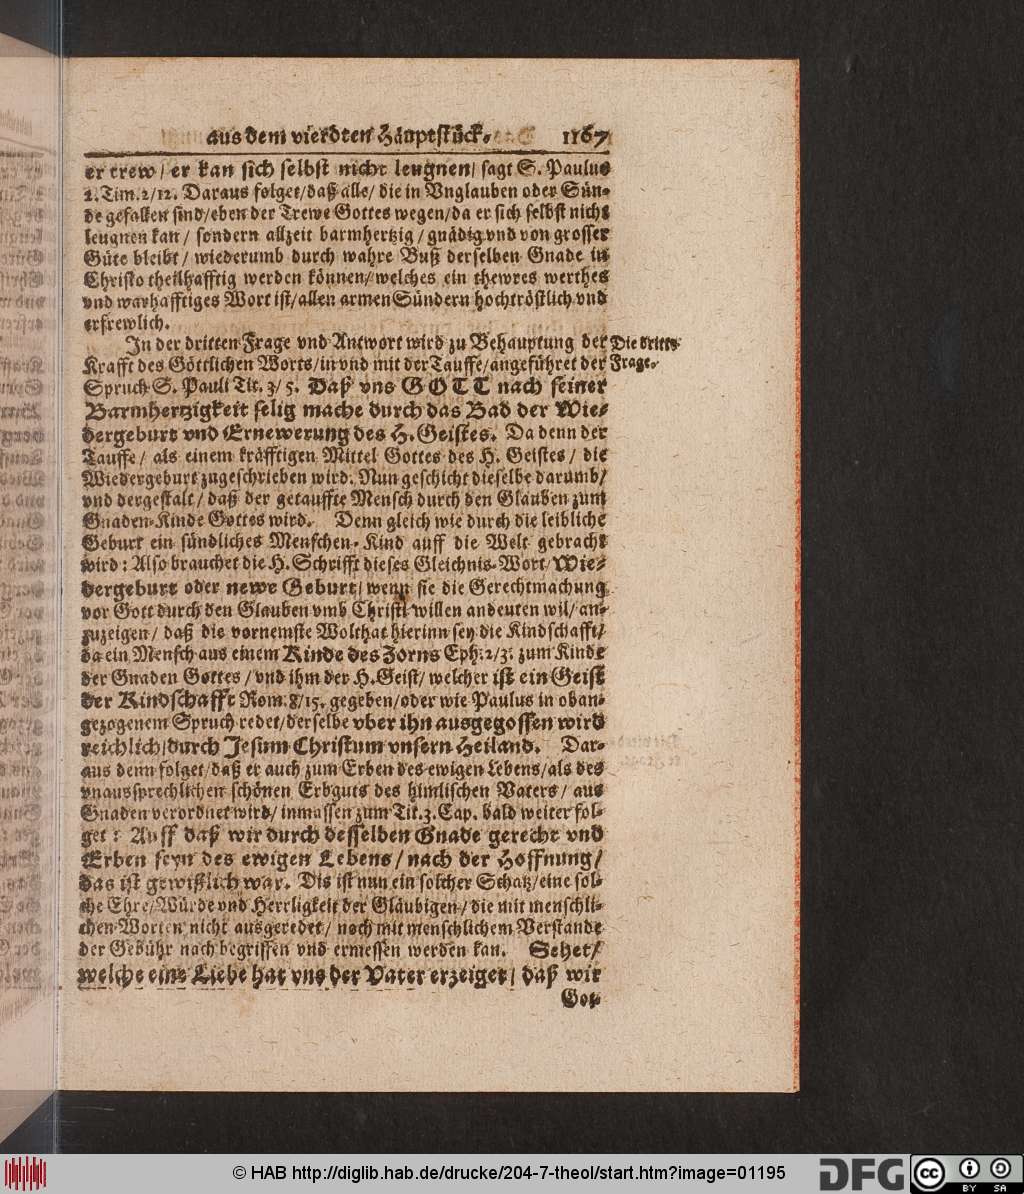 aus dem vierdten Häuptstück. 1167
er trew/ er kan sich selbst nicht leugnen/ sagt S. Paulus
2. Tim. 2/12. Daraus folget/ daß alle/ die in Vnglauben oder Sün-
de gefallen sind/ eben der Trewe Gottes wegen/ da er sich selbst nicht
leugnen kan/ sondern allzeit barmhertzig/ gnädig vnd von grosser
Güte bleibt/ wiederumb durch wahre Buß derselben Gnade in
Christo theilhafftig werden können/ welches ein thewres werthes
vnd warhafftiges Wort ist/ allen armen Sündern hochtröstlich vnd
erfrewlich.
In der dritten Frage vnd Antwort wird zu Behauptung der
Die dritte
Krafft des Göttlichen Worts/ in vnd mit der Tauffe/ angeführet der
Frage.
Spruch S. Pauli Tit. 3/5. Daß vns GOTT nach seiner
Barmhertzigkeit selig mache durch das Bad der Wie-
dergeburt vnd Ernewerung des H. Geistes. Da denn der
Tauffe/ als einem kräfftigen Mittel Gottes des H. Geistes/ die
Wiedergeburt zugeschrieben wird. Nun geschicht dieselbe darumb/
vnd dergestalt/ daß der getauffte Mensch durch den Glauben zum
Gnaden-Kinde Gottes wird. Denn gleich wie durch die leibliche
Geburt ein sündliches Menschen-Kind auff die Welt gebracht
wird: Also brauchet die H. Schrifft dieses Gleichnis-Wort/ Wie-
dergeburt oder newe Geburt/ wenn sie die Gerechtmachung
vor Gott durch den Glauben vmb Christi willen andeuten wil/ an-
zuzeigen/ daß die vornemste Wolthat hierinn sey die Kindschafft/
da ein Mensch aus einem Kinde des Zorns Eph. 2/3. zum Kinde
der Gnaden Gottes/ vnd ihm der H. Geist/ welcher ist ein Geist
der Kindschafft Rom. 8/15. gegeben/ oder wie Paulus in oban-
gezogenem Spruch redet/ derselbe vber ihn ausgegossen wird
reichlich/ durch Jesum Christum vnsern Heiland. Dar-
aus denn folget/ daß er auch zum Erben des ewigen Lebens/ als des
vnaussprechlichen schönen Erbguts des himlischen Vaters/ aus
Gnaden verordnet wird/ inmassen zum Tit. 3. Cap. bald weiter fol-
get: Auff daß wir durch desselben Gnade gerecht vnd
Erben seyn des ewigen Lebens/ nach der Hoffnung/
das ist gewißlich war. Dis ist nun ein solcher Schatz/ eine sol-
che Ehre/ Würde vnd Herrligkeit der Gläubigen/ die mit menschli-
chen Worten nicht ausgeredet/ noch mit menschlichem Verstande
der Gebühr nach begriffen vnd ermessen werden kan. Sehet/
welche eine Liebe hat vns der Vater erzeiget/ daß wir
Got-
© HAB http://diglib.hab.de/drucke/204-7-theol/start.htm?image=01195
DFG
cc BY SA